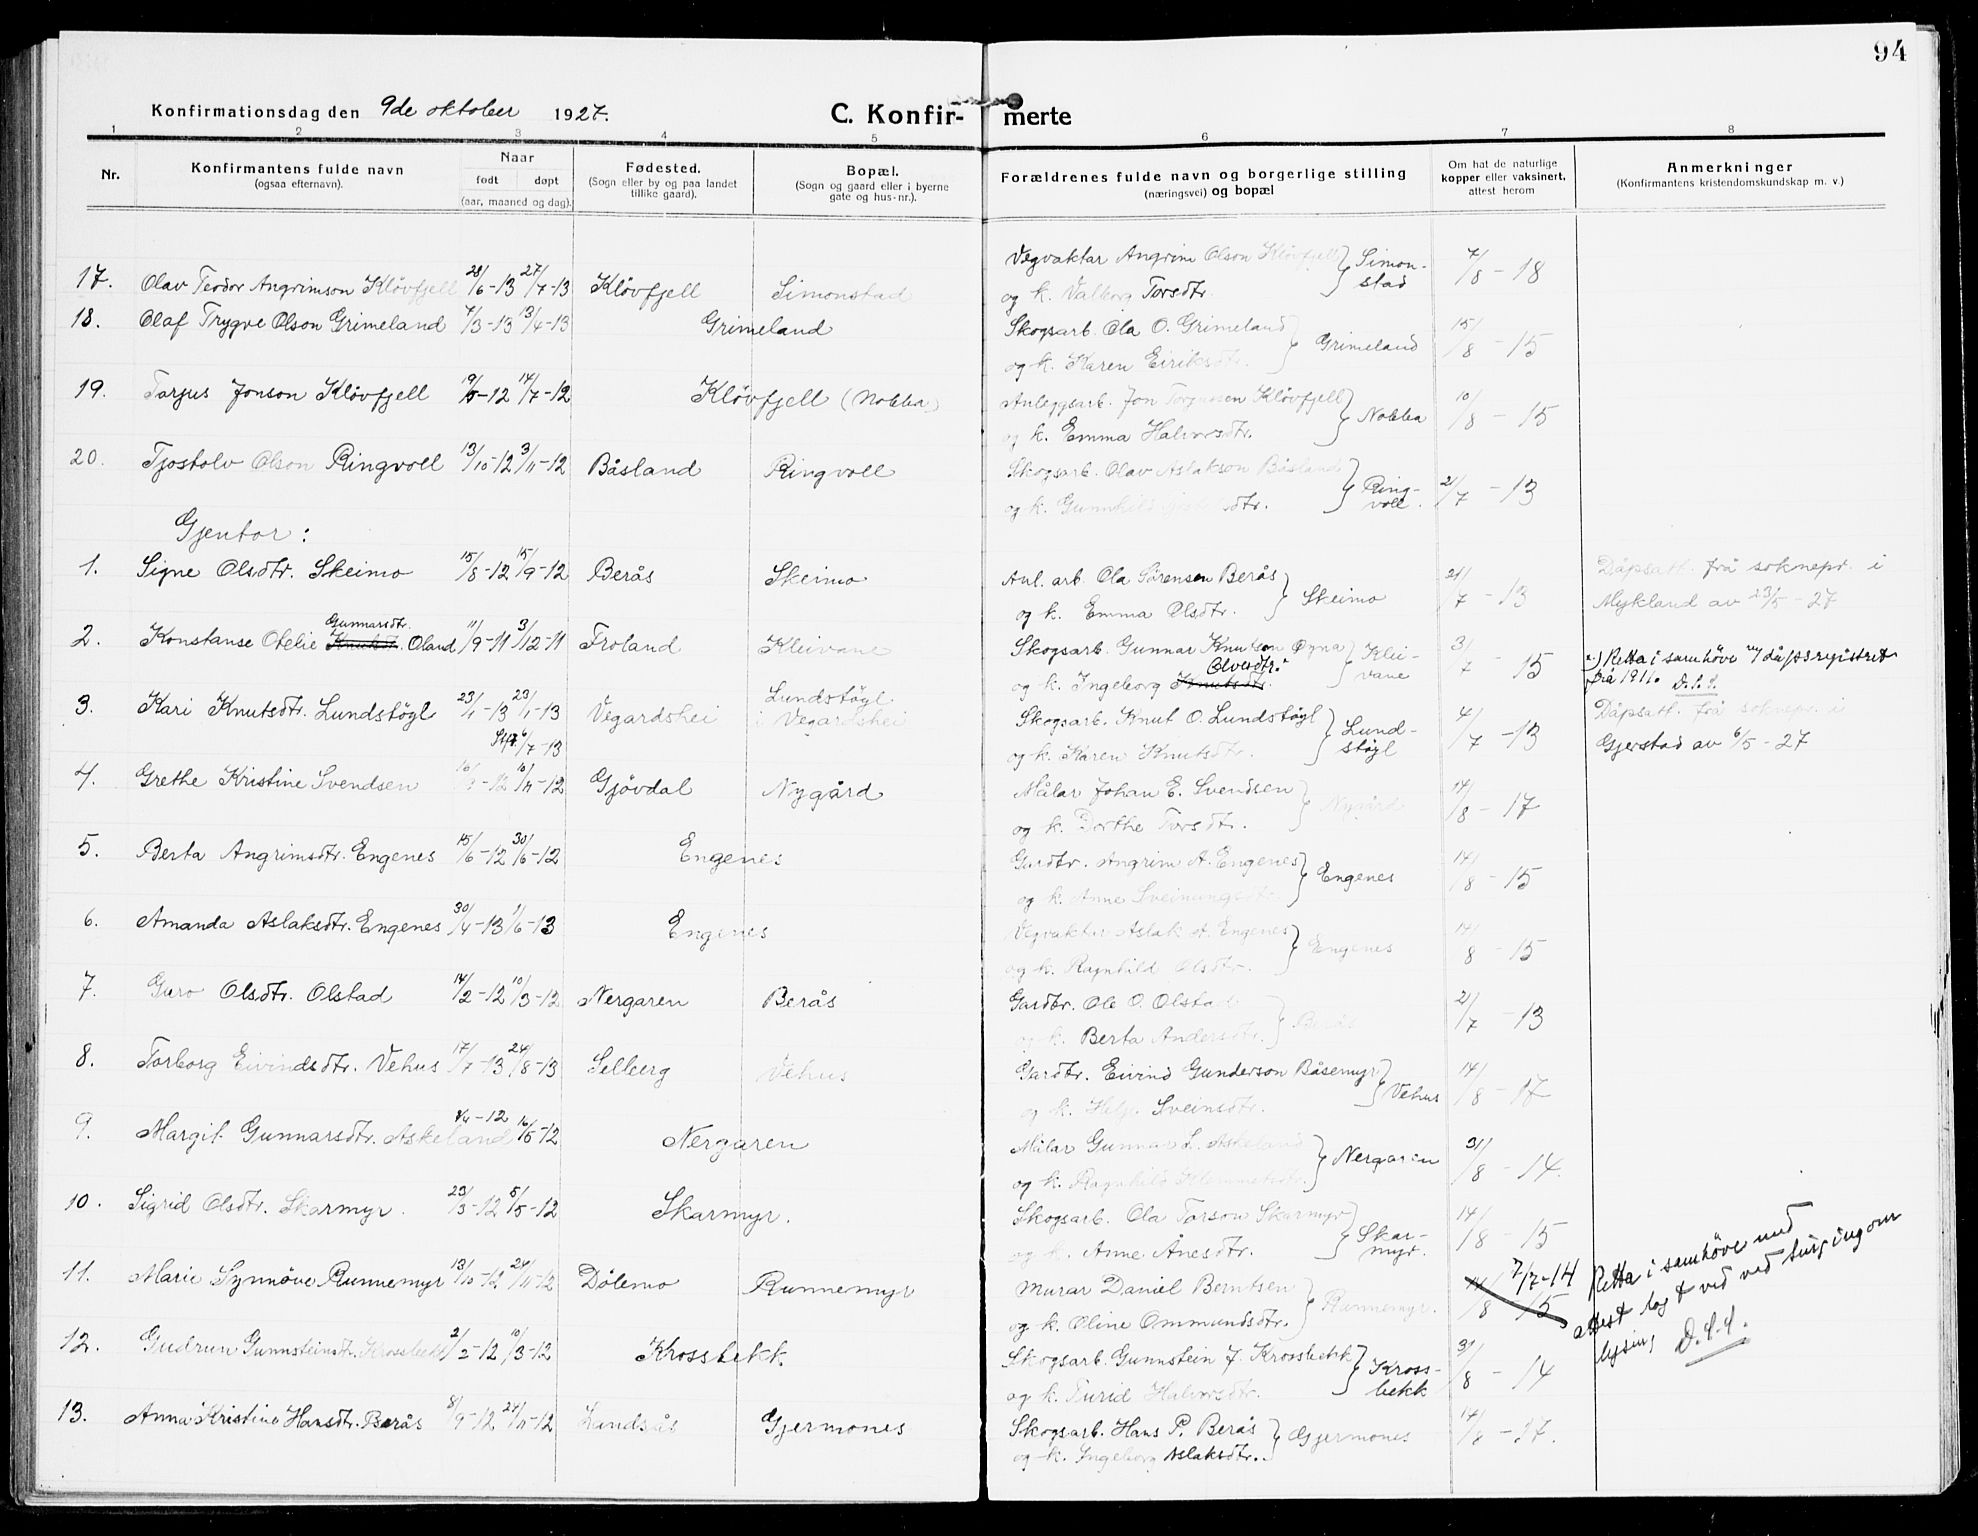 94
Konfirmationsdag den 9de oktober 1927. C. Konfirmerte
1 2 3 4 5 6 7 8
Nr. Konfirmantens fulde navn (ogsaa efternavn). Naar født døpt (aar, maaned og dag). Fødested. (Sogn eller by og paa landet tillike gaard). Bopæl. (Sogn og gaard eller i byerne gate og hus-nr.). Forældrenes fulde navn og borgerlige stilling (næringsvei) og bopæl Om hat de naturlige kopper eller vaksinert, attest herom Anmerkninger (Konfirmantens kristendomskundskap m. v.)
17. Olav Teodor Angrimson Kløvfjell 28/6-13 27/7-13 Kløvfjell Simonstad Vegvaktar Angrim Olson Kløvfjell og k. Valborg Torsdtr. } Simonstad 7/8-18
18. Olaf Trygve Olson Grimeland 7/3-13 13/4-13 Grimeland Skogsarb. Ola O. Grimeland og k. Karen Eiriksdtr. } Grimeland 15/8-15
19. Tarjus Jonson Kløvfjell 19/5-12 14/7-12 Kløvfjell (Nobba) Anleggsarb. Jon Torjussen Kløvfjell og k. Emma Halvorsdtr. } Nobba 10/8-15
20. Tjostolv Olson Ringvoll 13/10-12 3/11-12 Båsland Ringvoll Skogsarb. Olav Aslakson Båsland og k. Gunnhild } Ringvoll. 21/7-13
Gjentor:
1. Signe Olsdtr. Skeimo 15/8-12 15/9-12 Berås Skeimo Anl. arb. Ola Sørensen Berås og k. Emma Olsdtr. } Skeimo 21/7-13 Dåpsatt. frå soknepr. i Mykland av 23/5-27
2. Konstanse Otelie Gunnarsdtr. Knutsdtr. Oland 11/9-11 3/12-11 Froland Kleivane Skogsarb. Gunnar Knutson Øyna og k. Ingeborg Olvesdtr. Knutsdtr. } Kleivane 3/7-15 Retta i samhøve m/ dåpsregistret frå 1911. D.S.S.
3. Kari Knutsdtr. Lundstøgl 23/4-13 Stf. 6/7-13 Vegardshei Lundstøgl i Vegardshei Skogsarb. Knut O. Lundstøgl og k. Karen Knutsdtr. } Lundstøgl 4/7-13 Dåpsatt. frå soknepr. i Gjerstad av 6/5-27
4. Grethe Kristine Svendsen Gjøvdal Nygård Målar Johan E. Svendsen og k. Dorthe Torsdtr. } Nygård 14/8-17
5. Berta Angrimsdtr. Engenes 15/6-12 30/6-12 Engenes Gardbr. Angrim A. Engenes og k. Anne Sveinungsdtr. } Engenes 14/8-15
6. Amanda Aslaksdtr. Engenes 30/4-13 1/6-13 Engenes Vegvaktar Aslak A. Engenes og k. Ragnhild Olsdtr. } Engenes 14/8-15
7. Guro Olsdtr. Olstad 14/2-12 10/3-12 Nergaren Berås Gardbr. Ole O. Olstad og k. Berta Andersdtr. } Berås 21/7-13
8. Torborg Eivindsdtr. Vehus 17/7-13 24/8-13 Selberg Vehus Gardbr. Eivind Gunderson Båsemyr og k. Helje Sveinsdtr. } Vehus 14/8-17
9. Margit Gunnarsdtr. Askeland 16/5-12 Nergaren Målar Gunnar L. Askeland og k. Ragnhild Klemmetsdtr. } Nergaren 31/8-14.
10. Sigrid Olsdtr. Skarmyr. 23/3-12 5/5-12 Skarmyr. Skogsarb. Ola Torson Skarmyr og k. Anne Ånesdtr. } Skarmyr. 14/8-15
11. Marie Synnöve Runnemyr 13/10-12 24/11-12 Dölemo Runnemyr Murar Daniel Berntsen og k. Oline Ommundsdtr. } Runnemyr. 14/8-15 7/7-14 Retta i samhöve med attest lagt ved ved lysing D.S.S.
12. Gudrun Gunnsteinsdtr. Krossbekk 2/2-12 10/3-12 Krossbekk Skogsarb. Gunnstein J. Krossbekk og k. Turid Halvorsdtr. } Krossbekk 31/8-14
13. Anna Kristine Hansdtr. Berås 8/9-12 24/11-12 Landsås Gjermones Skogsarb. Hans P. Berås og k. Ingeborg Aslaksdtr. } Gjermones 14/8-27.